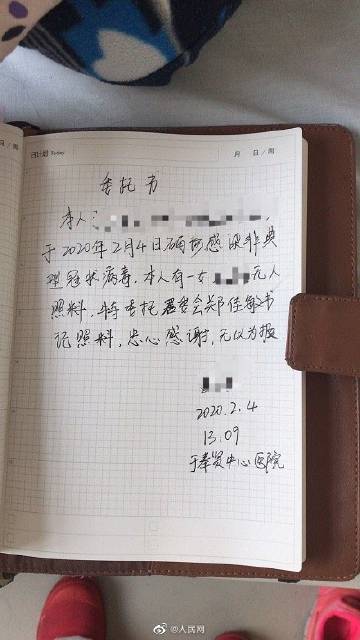 日计划 Today
月 日/周
/周
委托书
本人
于2020年2月4日确诊感染非典
型冠状病毒,本人有一女 无人
照料,特委托居委会 佳 书
记照料,忠心感谢,无以为报
2020.2.4
13.09
于奉贤中心医院
@人民网